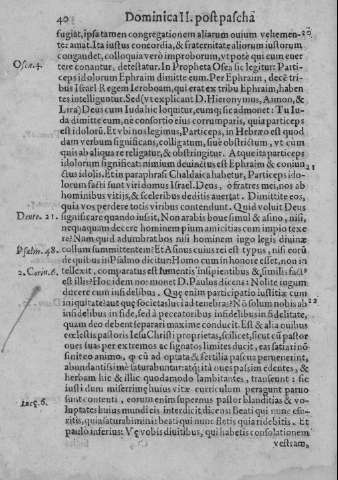 40 Dominica II. post pascha
fugiat, ipsa tamen congregationem aliarum ouium vehemen-
ter amat. Ita iustus concordia, & fraternitate aliorum iustorum
congaudet, colloquia verò improborum, vt potè qui cum euer
tere conantur, detestatur. In Propheta Osea sic legitur: Parti-
Oseæ 4.
ceps idolorum Ephraim dimitte eum. Per Ephraim, decẽ tri-
bus Israel Regem Ieroboam, qui erat ex tribu Ephraim, haben-
tes intelliguntur. Sed (vt explicant D. Hieronymus, Aimon, &
Lira) Deus cum Iuda hic loquitur, eumq; sic admonet: Tu Iu-
da dimitte eum, ne consortio eius corrumparis, quia particeps
est idolorũ. Et vbi nos legimus, Particeps, in Hebræo est quod
dam verbum significans, colligatum, siuè obstrictum, vt cum
quis ab aliqua re religatur, & obstringitur. At quæ ita particeps
idolorum significat: nimium deuinctus est Ephraim & coniun
21
ctus idolis. Et in paraphrasi Chaldaica habetur, Particeps ido-
lorum facti sunt viri domus Israel. Deus, ò fratres mei, nos ab
hominibus vitijs, & sceleribus deditis auertat. Dimittite eos,
quia vos perdere totis viribus contendunt. Quid voluit Deus
Deute. 21.
significare quando iussit, Non arabis boue simul & asino, nisi,
nequaquam decere hominem pium amicitias cum impio texe
re? Nam quid adumbrat bos nisi hominem iugo legis diuinæ
Psalm. 48.
collum summittentem? Et Asinus cuius rei est typus, nisi eorũ
de quibus in Psalmo dicitur: Homo cum in honore esset, non in
2. Corin. 6.
tellexit, comparatus est iumentis insipientibus & similis factus
est illis? Hoc idem nos monet D. Paulus dicens: Nolite iugum
ducere cum infidelibus. Quę enim participatio iustitiæ cum
iniquitate? aut quę societas luci ad tenebras? Nõ solum nobis ab
22
infidelibus in fide, sed à peccatoribus infidelibus in fidelitate,
quam deo debent separari maxime conducit. Est & alia ouibus
ecclesiæ pastoris Iesu Christi proprietas, scilicet, sicut cũ pastor
oues suas per extremos ac signatos limites ducit, eas satiari nõ
sinit eo animo, φ cũ ad optata & fertilia pascua peruenerint,
abundantissimè saturabuntur: atq; ità oues passim edentes, &
herbam hic & illic quodam modo lambitantes, transeunt: sic
iusti dum miserrimæ huius vitæ curriculum peragunt paruo
sunt contenti, eorum enim supremus pastor blanditias & vo-
luptates huius mundi eis interdicit dicens: Beati qui nunc esu-
Lucę. 6.
ritis, quia saturabimini: beati qui nunc fletis quia ridebitis. Et
paulò inferius: Vę vobis diuitibus, qui habetis consolationem
vestram,